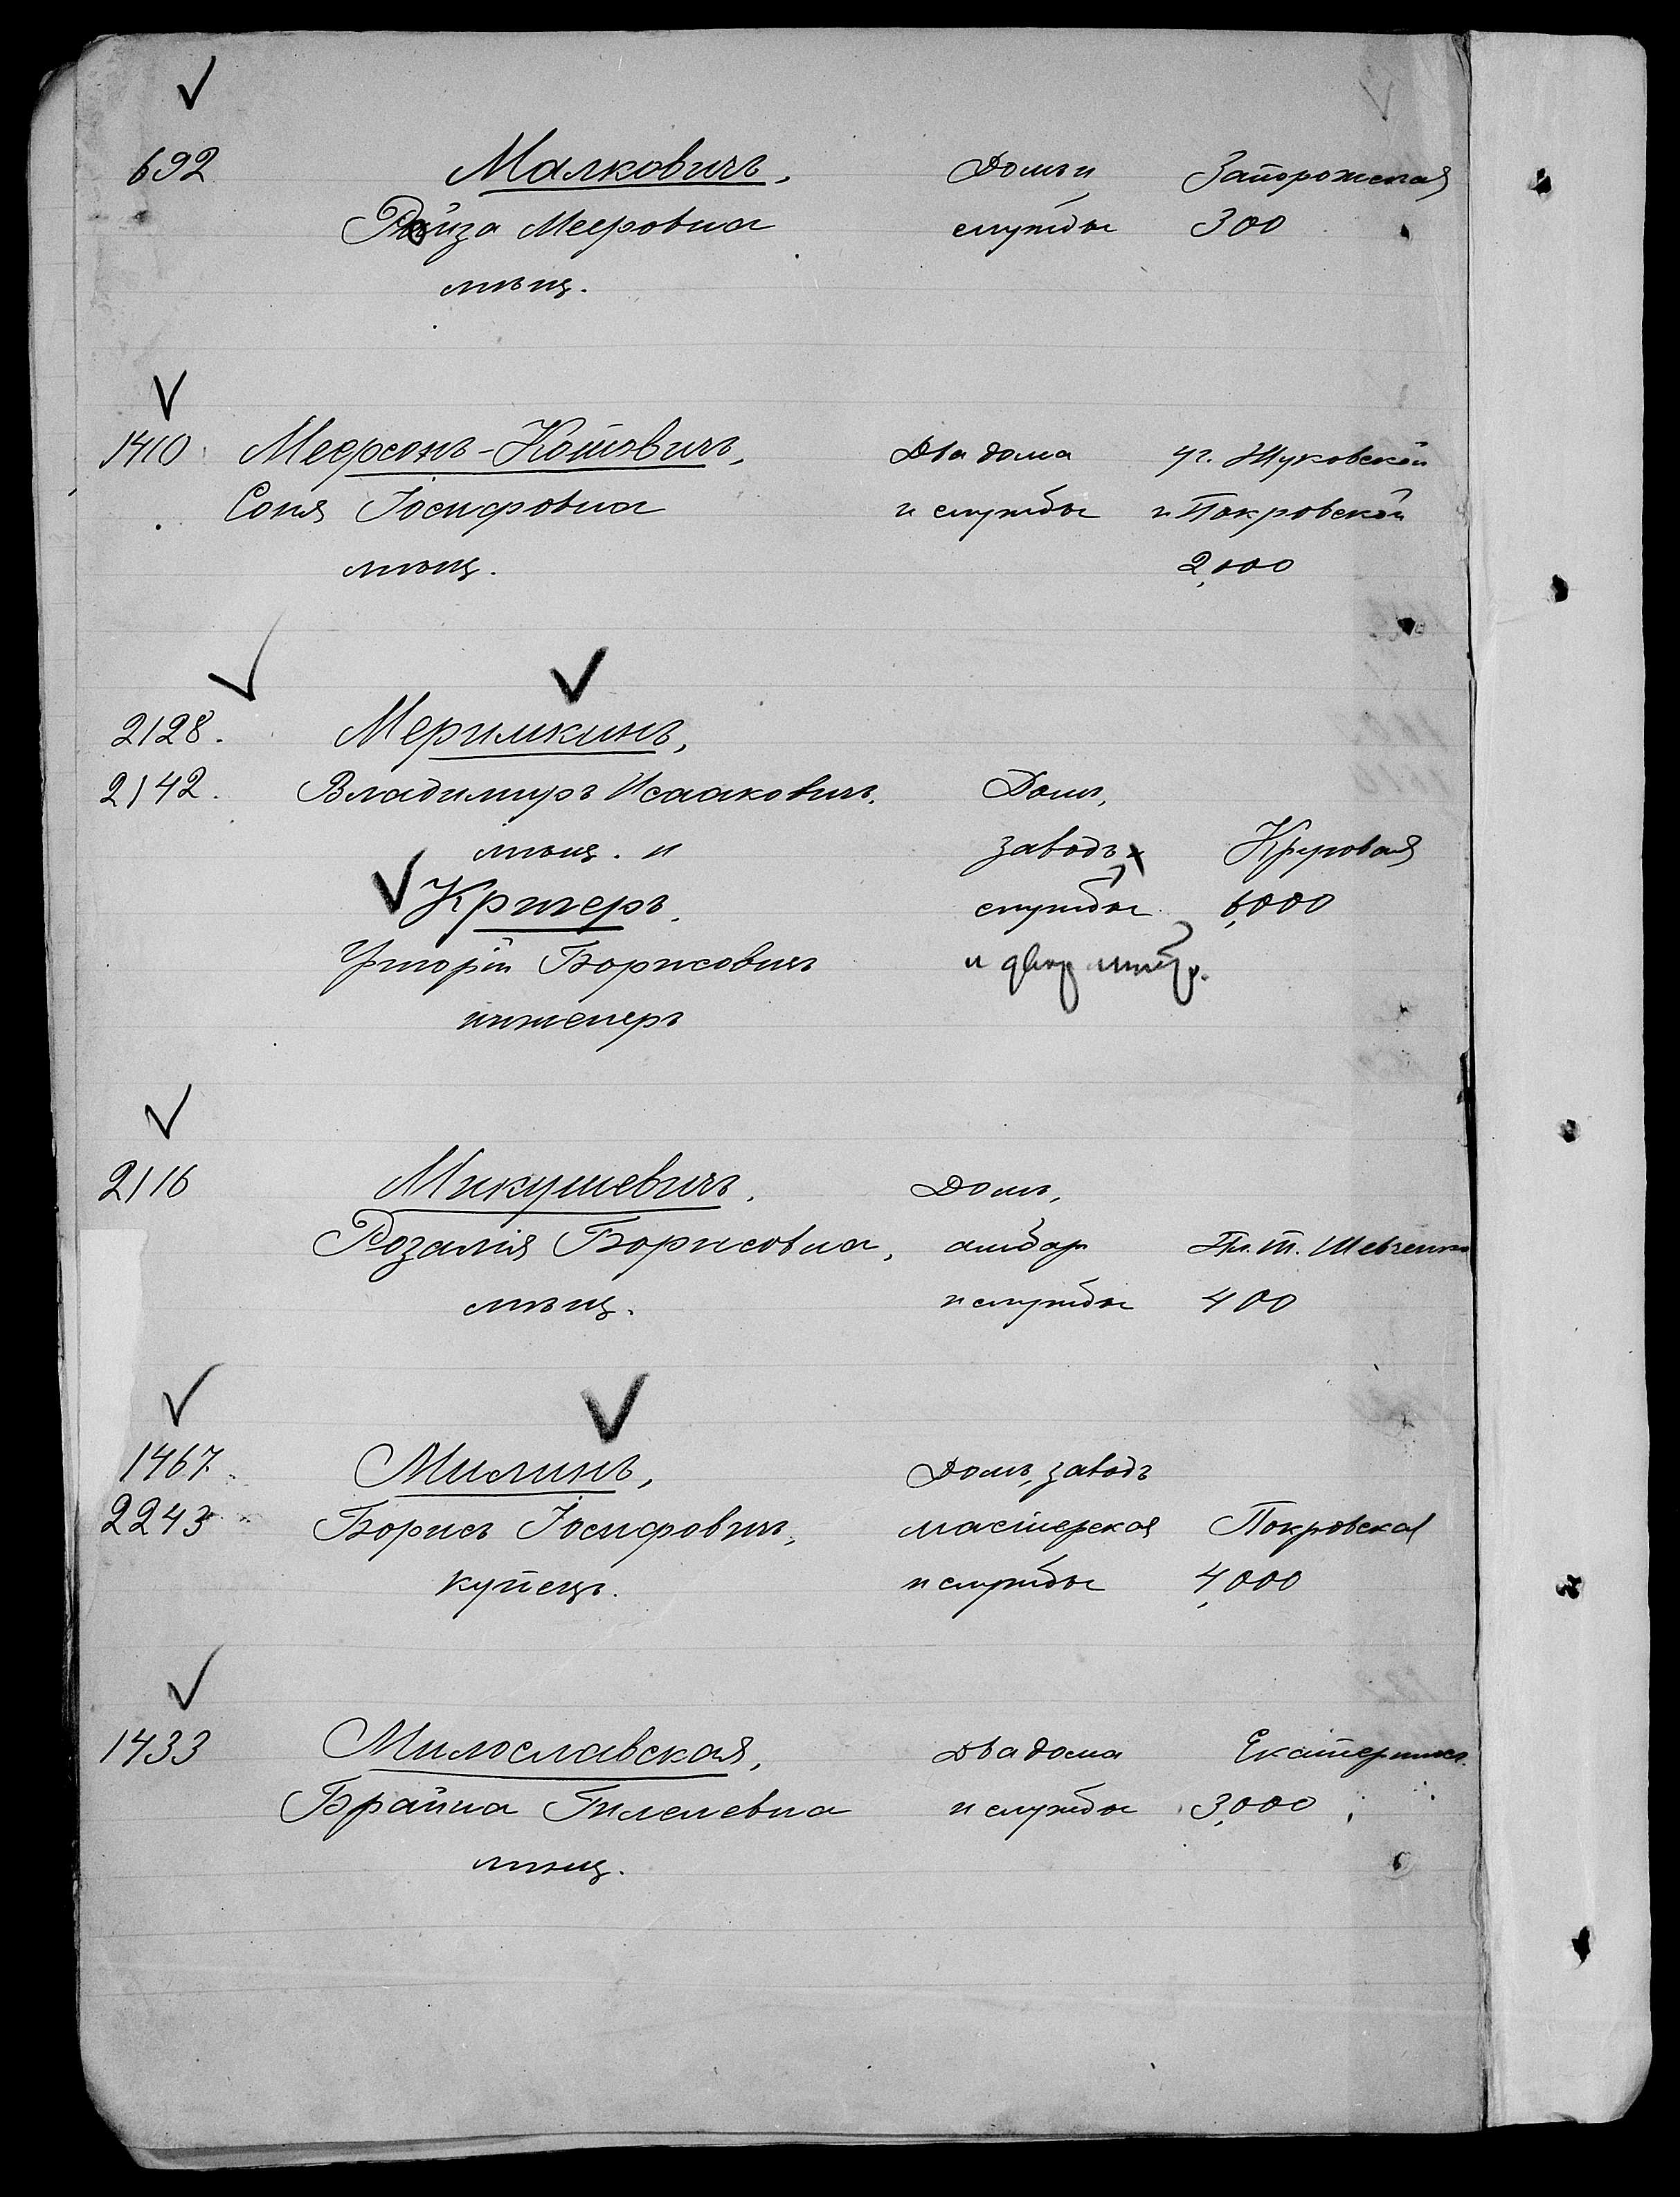 692 Малковичъ, Домъ и Запорожская
Ройза Мееровна службы 300
мѣщ.
1410 Меерсонъ-Котовичъ, Два дома уг. Жуковской
Соня Іосифовна и службы и Покровской
мѣщ. 2,000
2128. Меримкинъ,
2142. Владимиръ Исааковичъ, Домъ,
мѣщ. и заводъ Круговая
Кригеръ, службы 6,000
Григорій Борисовичъ и
инженеръ
2116 Микушевичъ, Домъ,
Розалія Борисовна, амбар Пл. Т. Шевченко
мѣщ. и службы 400
1467. Милинъ, Домъ, заводъ
2243 Борисъ Іосифовичъ, мастерская Покровская
купецъ. и службы 4,000
1433 Милославская, Два дома Екатеринин.
Брайна Гилелевна и службы 3,000
мѣщ.